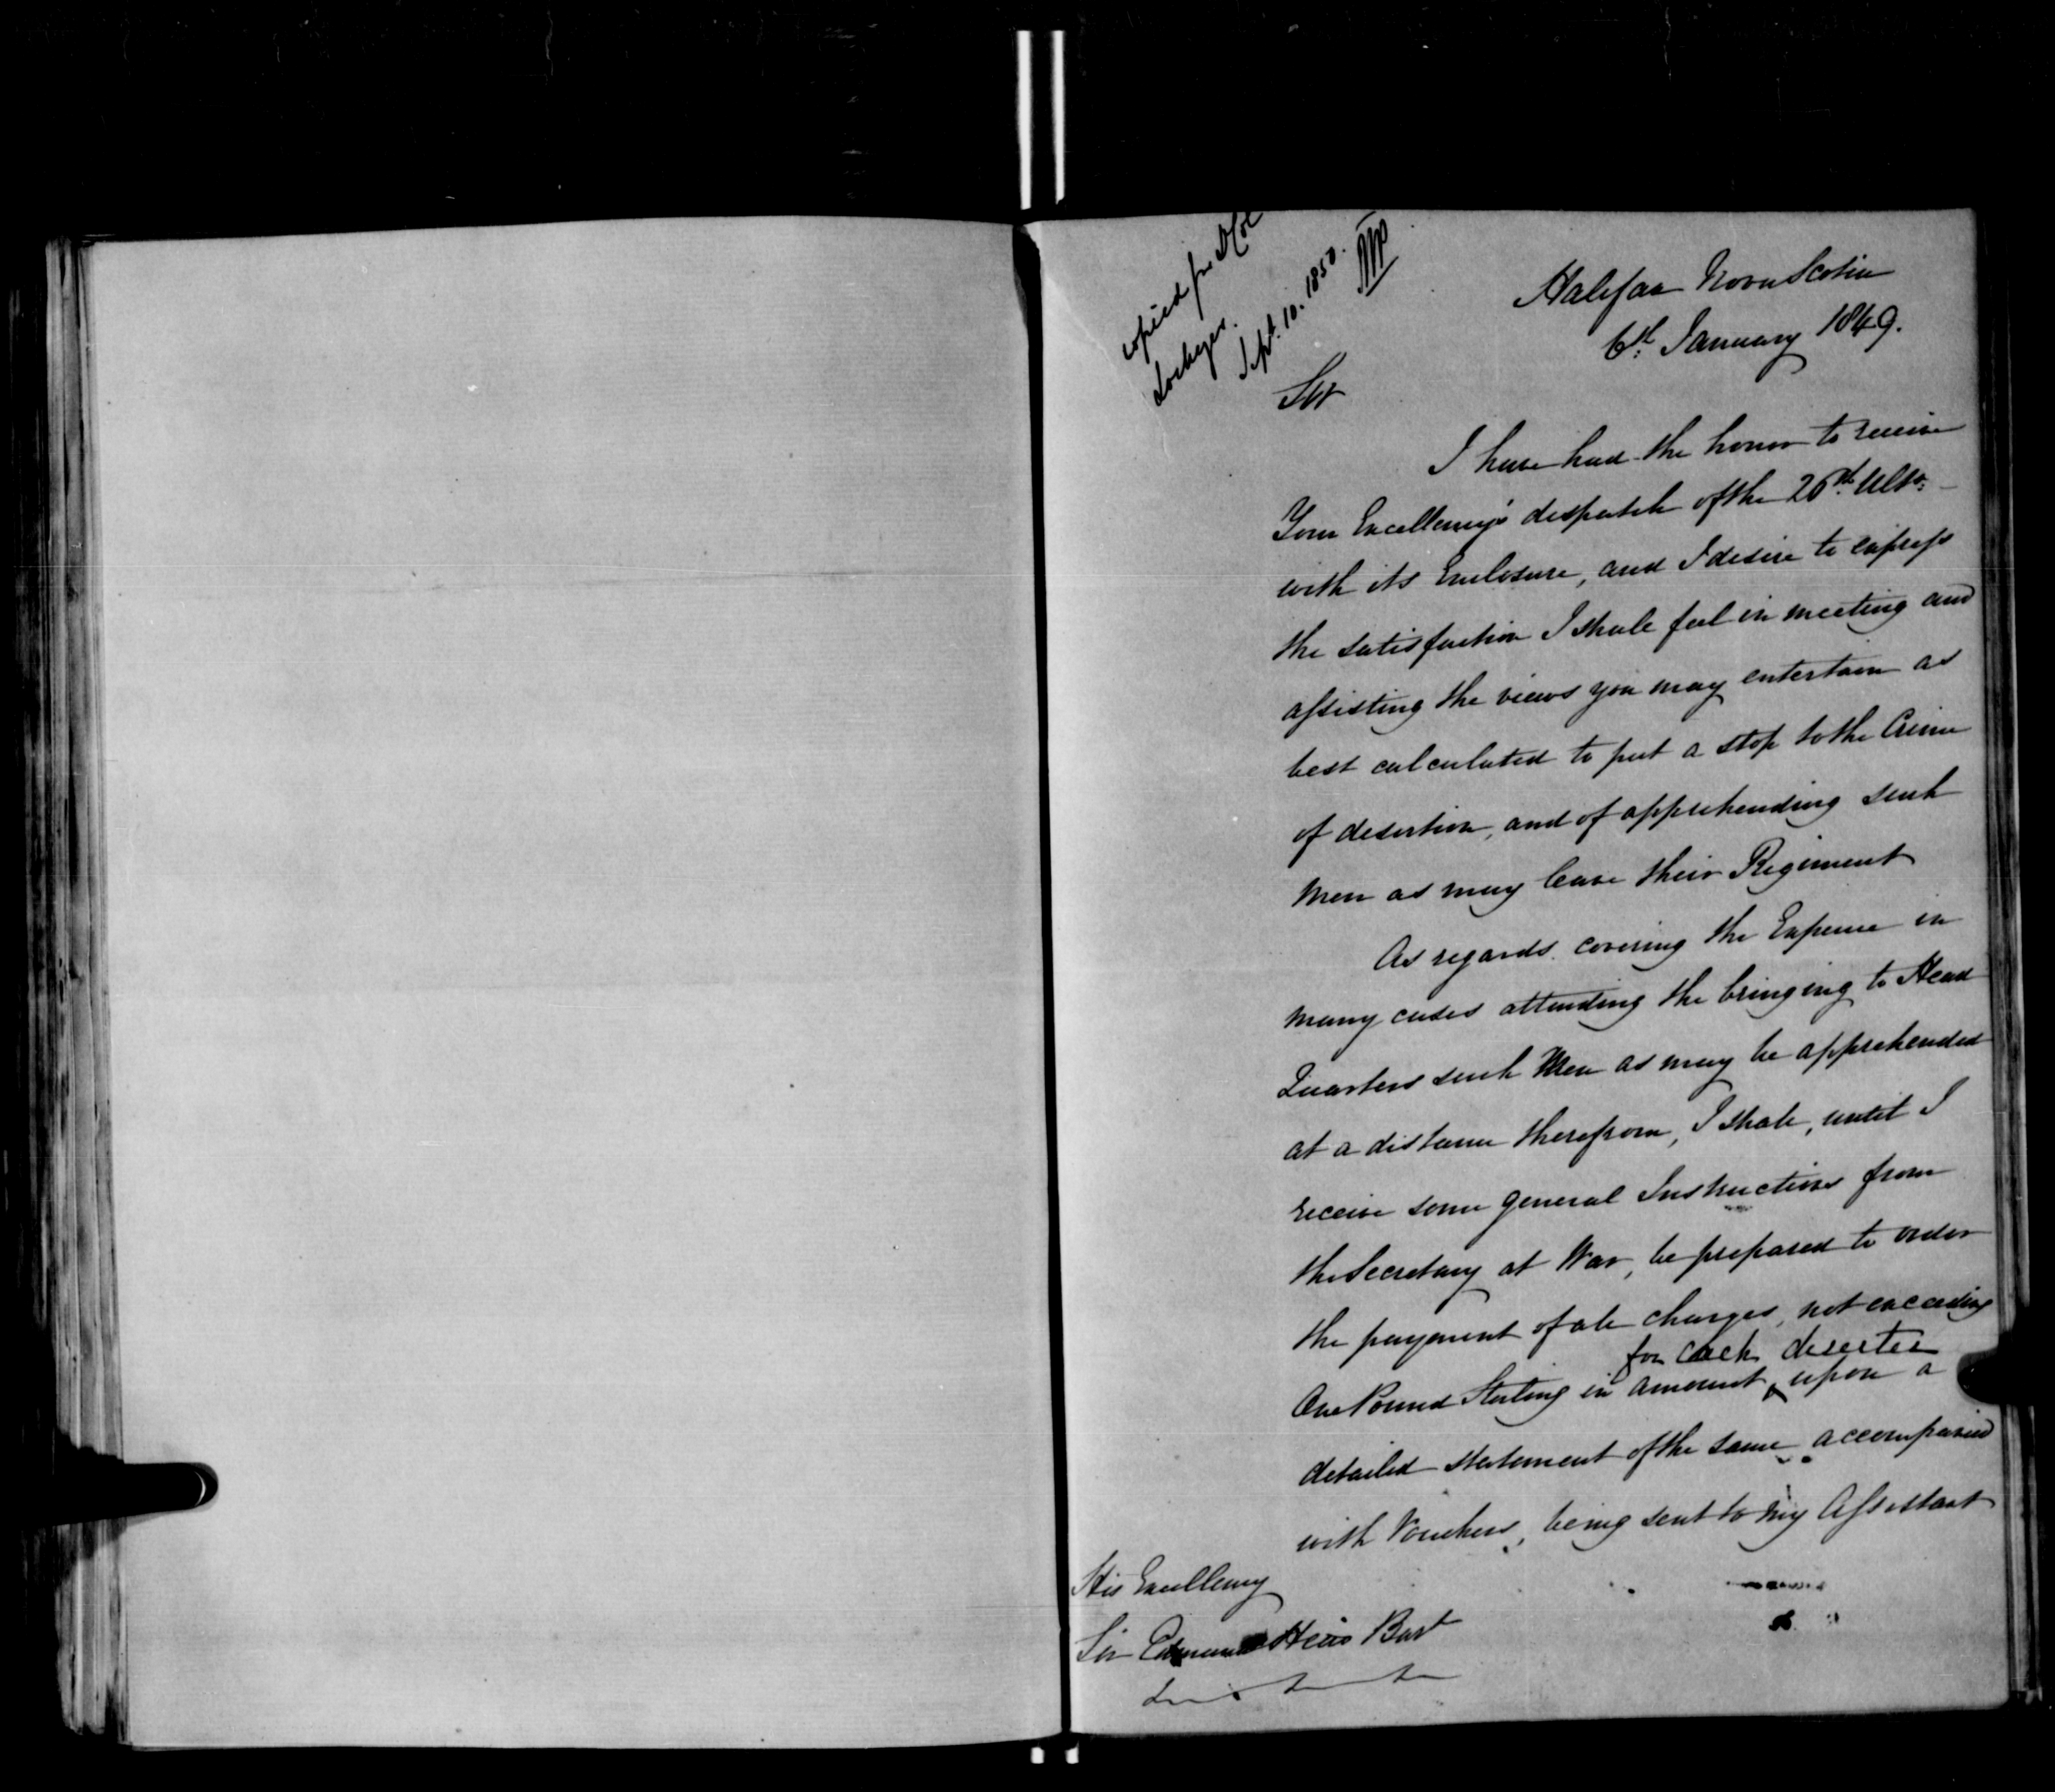 copied for
Sept. 10. 1850.
Halifax Nova Scotia
6th January 1849.
Sir
I have had the honor to receive
Your Excellency's despatch of the 26th Ulto.
with its Enclosure, and I desire to express
the satisfaction I shall feel in meeting and
assisting the views you may entertain as
best calculated to put a stop to the Crime
of desertion, and of apprehending such
Men as may leave their Regiment
As regards covering the Expense in
many cases attending the bringing to Head
Quarters such Men as may be apprehended
at a distance therefrom, I shall, until I
receive some general Instructions from
the Secretary at War, be prepared to order
the payment of all charges, not exceeding
for each deserter
One Pound Sterling in amount, upon a
detailed statement of the same accompanied
with Vouchers, being sent to my Assistant
His Excellency
Sir Edmund Head Bart